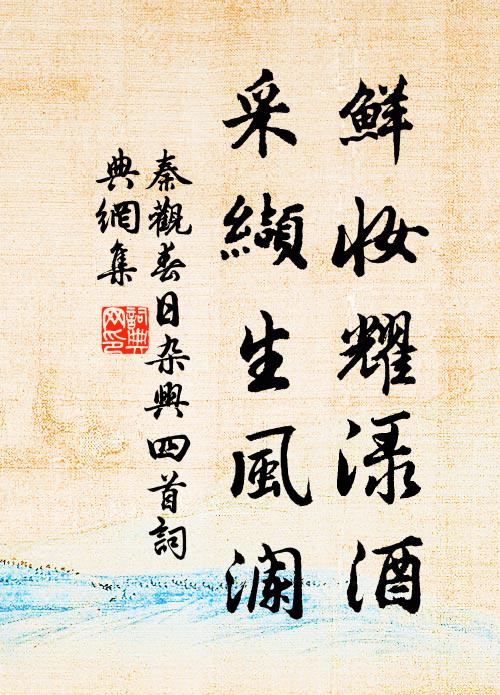 鮮妝耀渌酒
采纈生風澜
秦觀春日杂興四首詞
典網集
詞典网印